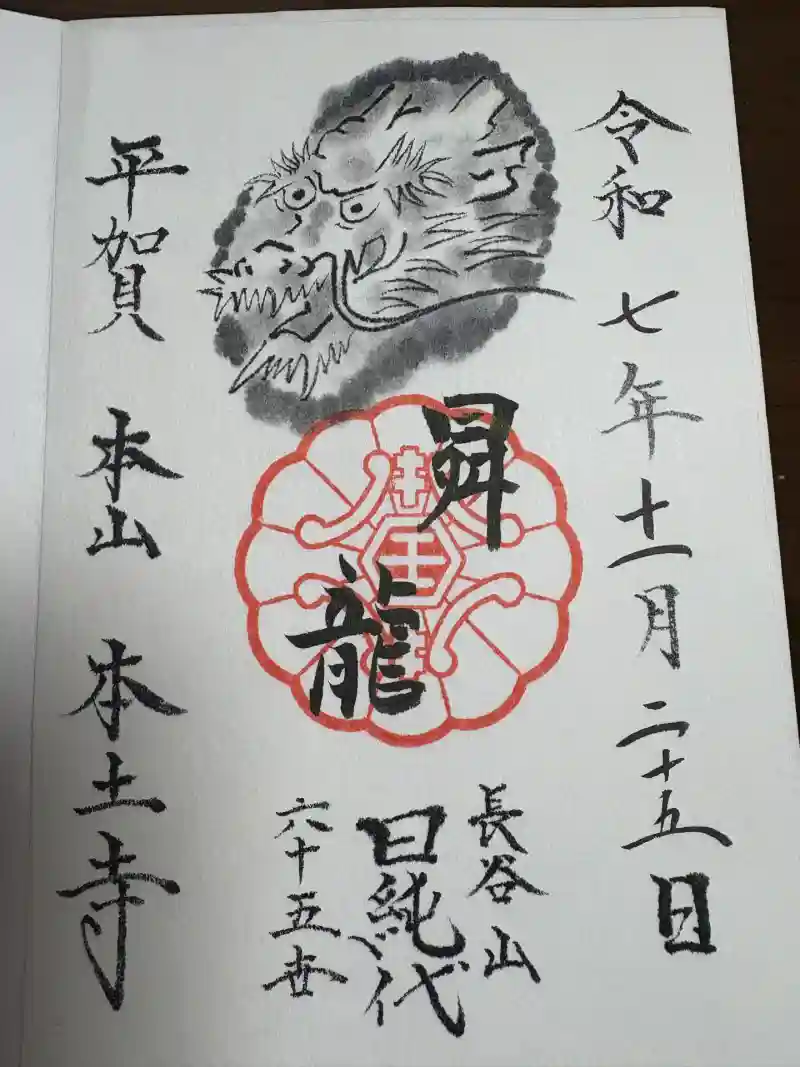 令和七年十一月二十五日
昇龍
長谷山
日純代
六十五世
平賀 本山 本土寺